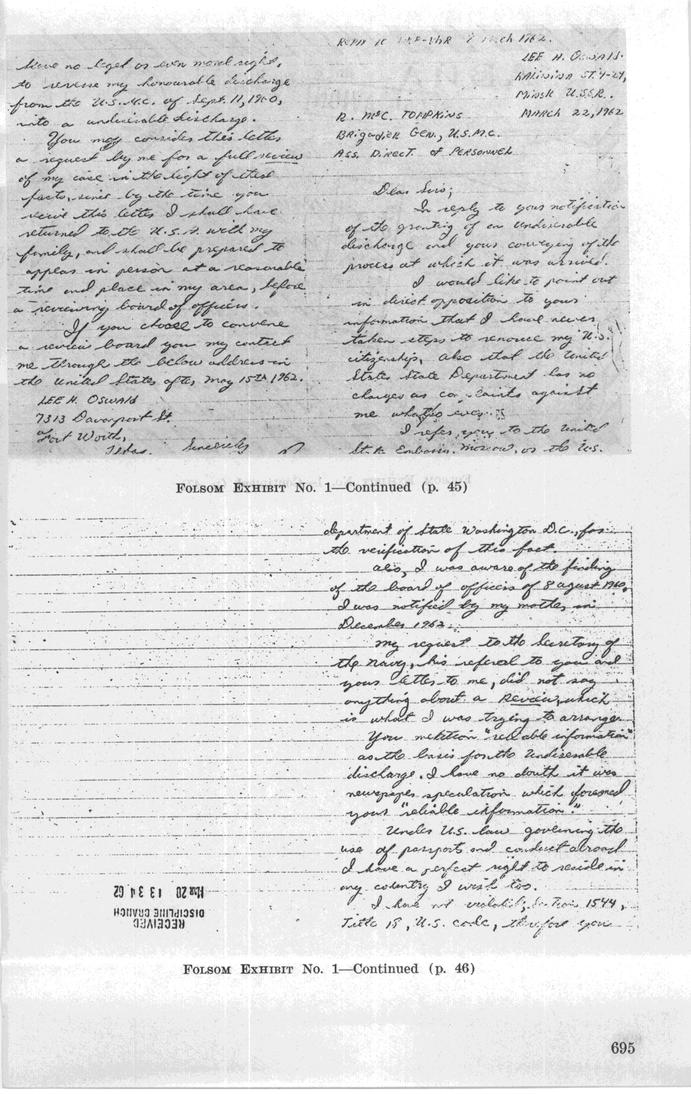 have no legal or even moral right,
to reverse my honourable discharge
from the U.S.M.C. of Sept. 11, 1960,
into a undesirable discharge.
You may consider this letter
a request by me for a full review
of my case in the light of these
facts, since by the time you
recive this letter I shall have
returned to the U.S.A. with my
family, and shall be prepared to
appear in person at a reasonable
time and place in my area, before
a reviewing board of officers.
If you choose to convene
a review board you my contact
me through the below address in
the United States after May 15th 1962.
LEE H. OSWALD
7313 Davenport St.
Fort Worth,
Texas. Sincerely
1962.
LEE H. OSWALD
KALININA ST. 4-24,
MINSK U.S.S.R.
MARCH 22, 1962
R. McC. TOMPKINS
BRIGADIER GEN., U.S.M.C.
ASS. DIRECT. of PERSONNEL
Dear Sirs;
In reply to your notification
of the granting of an undesirable
discharge and your conveying of the
process at which it was arrived.
I would like to point out
in direct opposition to your
information that I have never
taken steps to renounce my U.S.
citizenship, also that the United
States State Department has no
charges or against
me
I refer you to the United
Embassy, Moscow, or the U.S.
FOLSOM EXHIBIT No. 1—Continued (p. 45)
department of State Washington D.C., for
the verification of this fact.
also, I was aware of the finding
of the board of officers of 8 agust 1960,
I was notified by my mother in
December 1962.
My request to the Secretary of
the Navy, his referal to you and
your letter to me, did not say
anything about a Review, which
is what I was trying to arrange.
You "reliable information"
as the basis for the undesirable
discharge. I have no douth it was
newspaper speculation which foremed
your "reliable information".
Under U.S. law governing the
use of passports and conduct abroad
I have a perfect right to reside in
any country I wish too.
I have not Section 1544,
Title 18, U.S. code, therefore you
RECEIVED
DISCIPLINE BRANCH
MAR 20 13 34 62
FOLSOM EXHIBIT No. 1—Continued (p. 46)
695